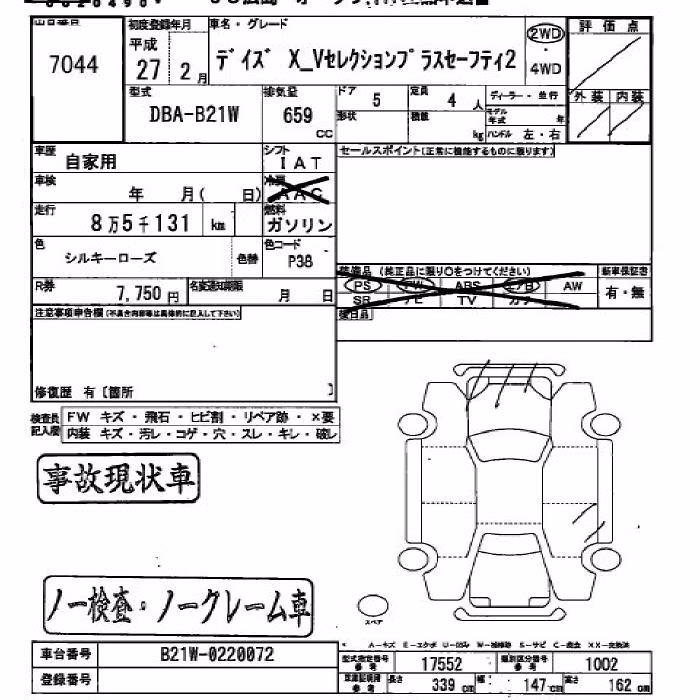 初度登録年月 車名・グレード 評価点
7044 平成 27 2月 デイズ X_Vセレクションプラスセーフティ2 2WD ・ 4WD
型式 排気量 ドア 5 定員 4 人 ディーラー・並行 外装 内装
DBA-B21W 659 cc 形状 積載 kg モデル年式 年 ハンドル 左・右
車歴 自家用 シフト IAT セールスポイント(正常に機能するものに限ります)
車検 年 月( 日) 冷房 AAC
走行 8万5千131 km 燃料 ガソリン
色 シルキーローズ 色替 色コード P38
装備品 (純正品に限り○をつけてください) 新車保証書
R券 7,750円 名変通知期限 月 日 PS PW ABS エアB AW 有・無
SR ナビ TV カワ
注意事項申告欄(不具合内容等は具体的に記入して下さい) 後日品
修復歴 有〔箇所 〕
検査員記入欄 FW キズ・飛石・ヒビ割・リペア跡・×要
内装 キズ・汚レ・コゲ・穴・スレ・キレ・破レ
事故現状車
ノー検査・ノークレーム車
スペア
車台番号 B21W-0220072
登録番号
型式指定番号 参考 17552 類別区分番号 参考 1002
車庫証明用 参考 長さ 339 cm 幅 147 cm 高さ 162 cm